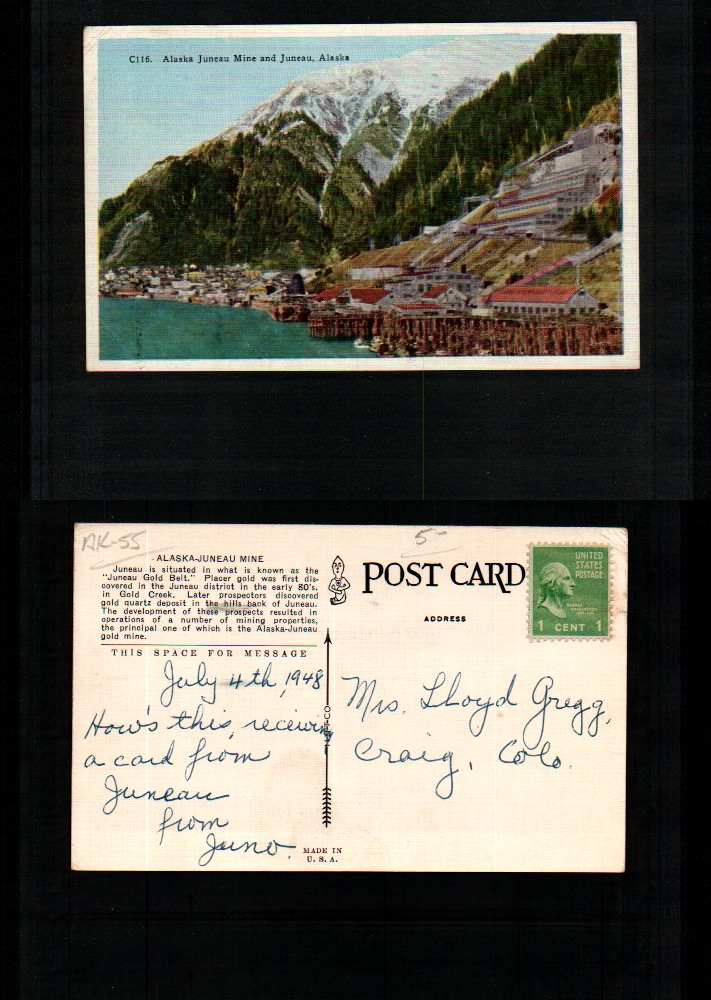 C116. Alaska Juneau Mine and Juneau, Alaska
AK-55
5-
ALASKA-JUNEAU MINE
Juneau is situated in what is known as the
"Juneau Gold Belt." Placer gold was first dis-
covered in the Juneau district in the early 80's,
in Gold Creek. Later prospectors discovered
gold quartz deposit in the hills bank of Juneau.
The development of these prospects resulted in
operations of a number of mining properties,
the principal one of which is the Alaska-Juneau
gold mine.
THIS SPACE FOR MESSAGE
POST CARD
ADDRESS
UNITED
STATES
POSTAGE
1 CENT 1
July 4th, 1948
How's this, receiving
a card from
Juneau
from
Juno.
Mrs. Lloyd Gregg,
Craig, Colo.
MADE IN
U. S. A.